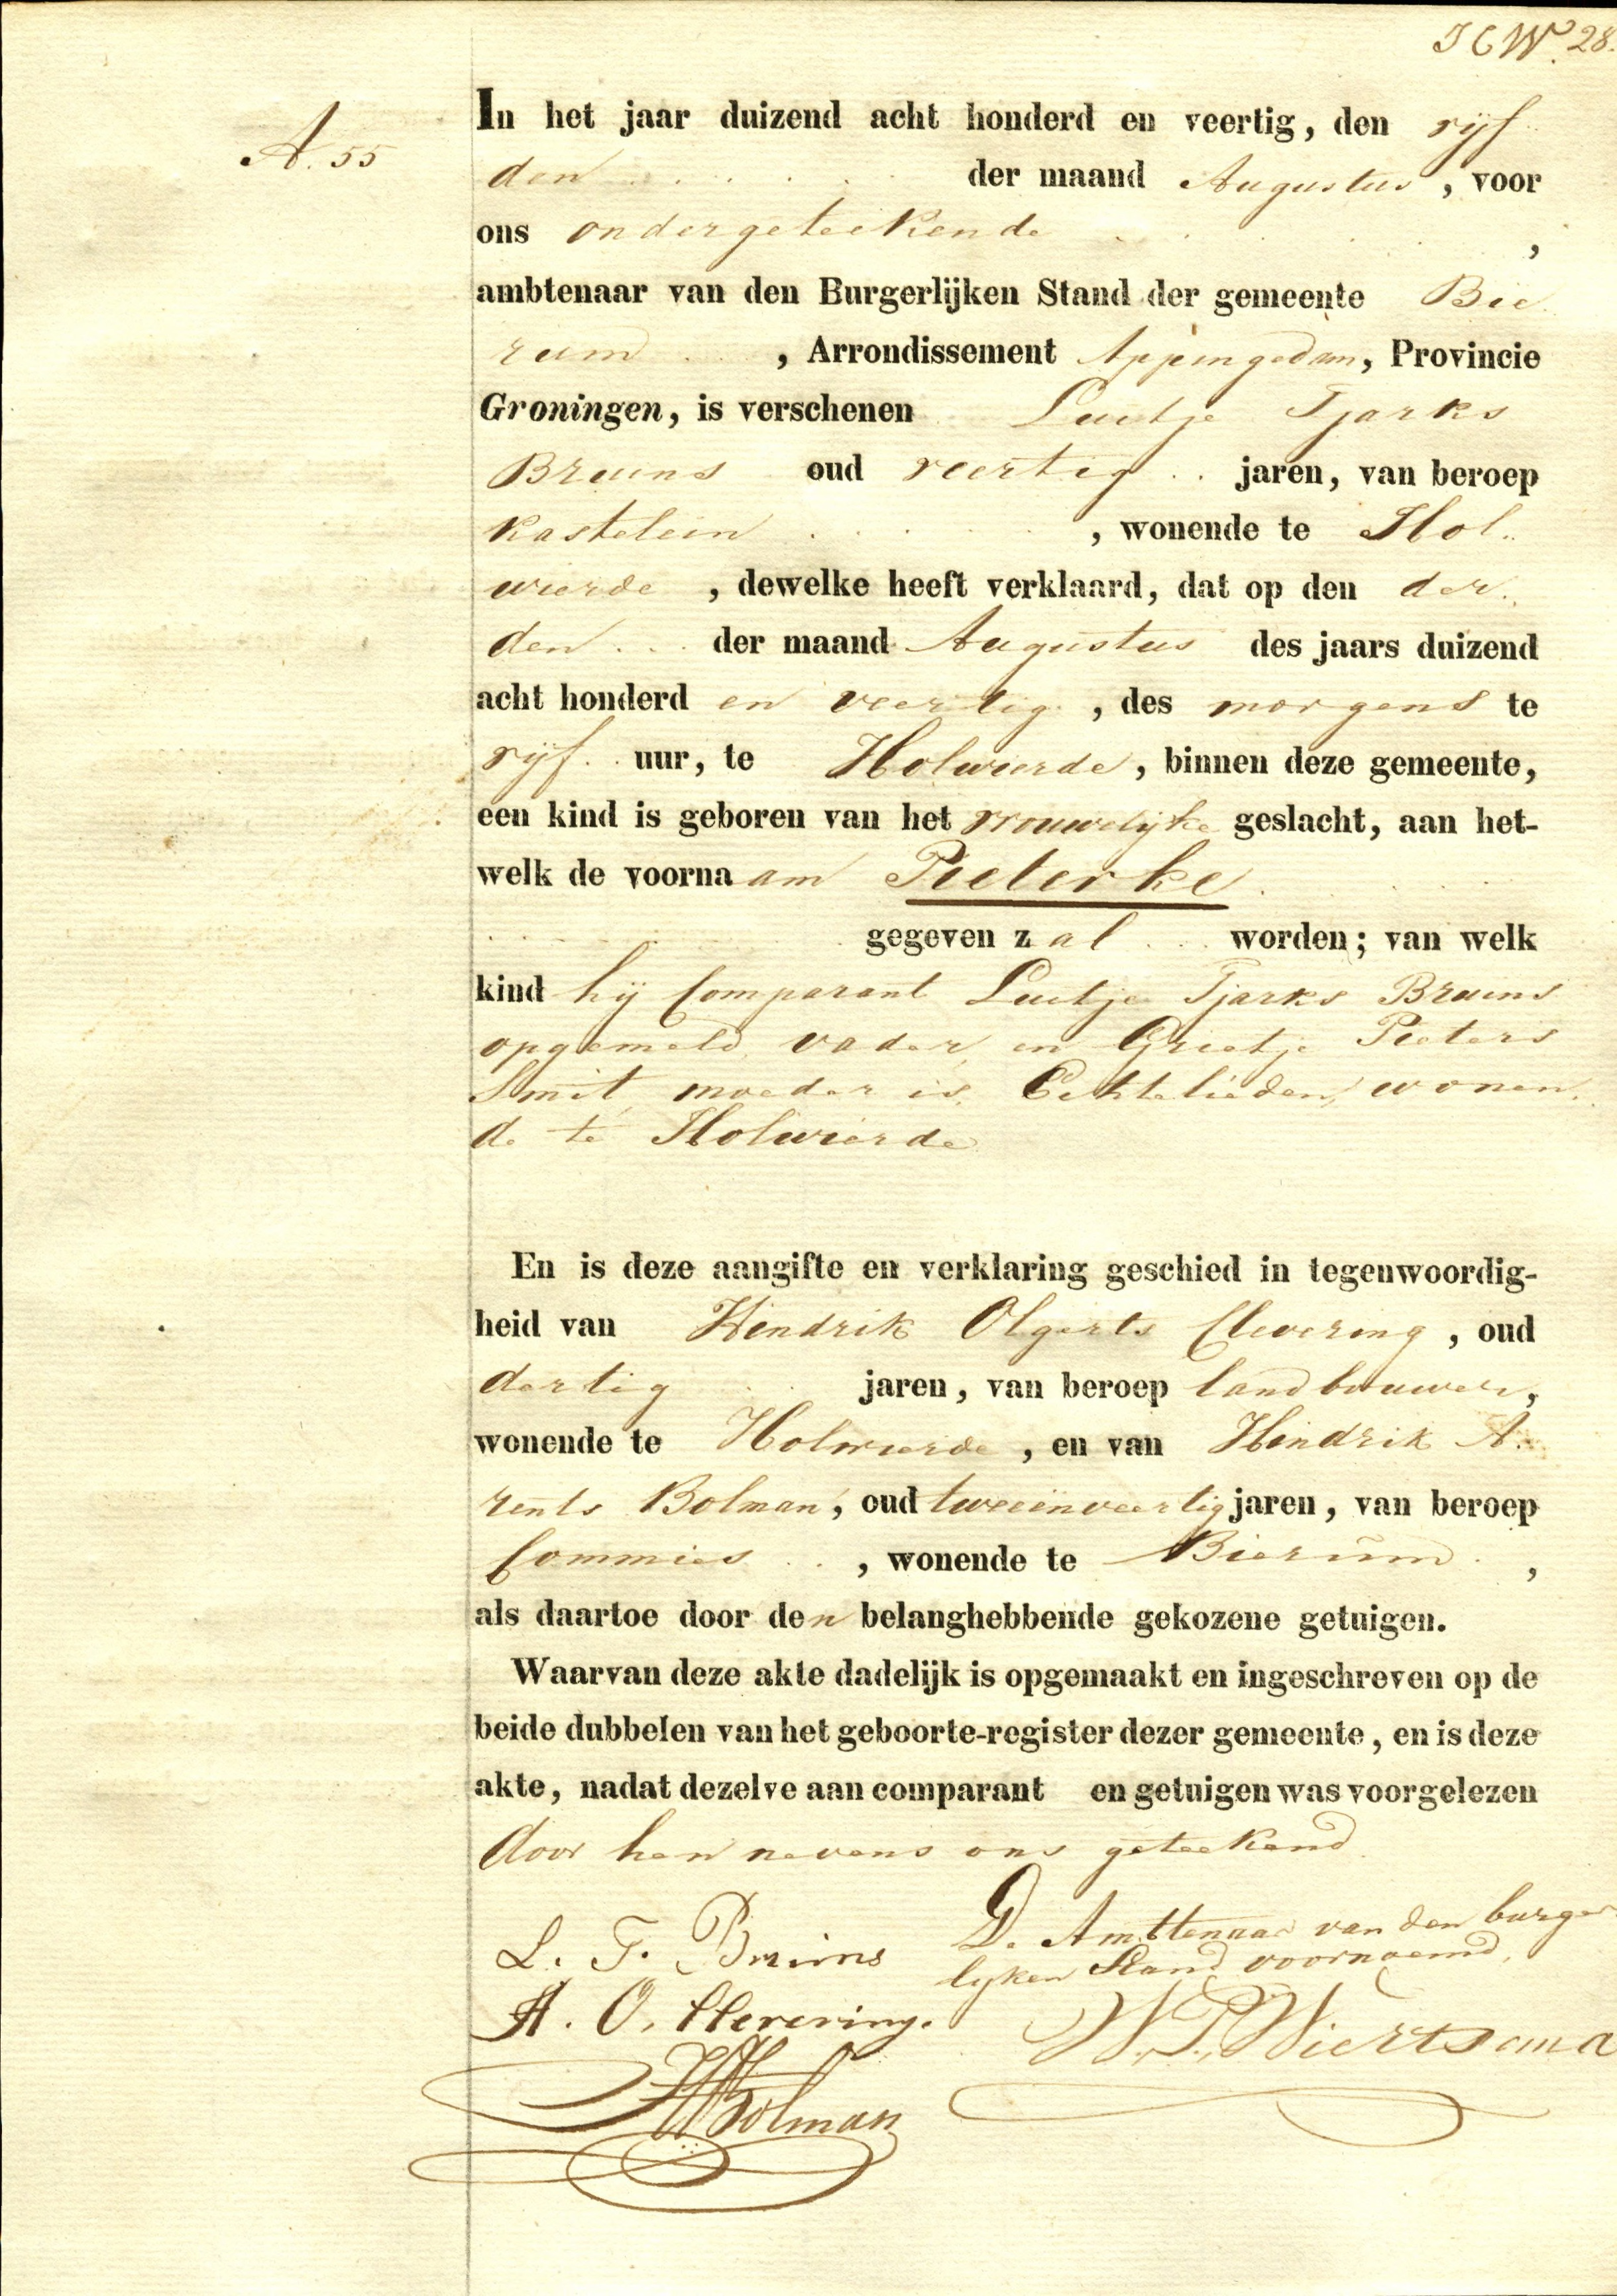 28.
A. 55
In het jaar duizend acht honderd en veertig, den vijf
den der maand Augustus, voor
ons ondergeteekende ,
ambtenaar van den Burgerlijken Stand der gemeente Bie
rum , Arrondissement Appingedam, Provincie
Groningen, is verschenen Luitje Tjarks
Bruins oud veertig jaren, van beroep
kastelein , wonende te Hol
wierde , dewelke heeft verklaard, dat op den der
den der maand Augustus des jaars duizend
acht honderd en veertig , des morgens te
vijf uur, te Holwierde , binnen deze gemeente,
een kind is geboren van het vrouwelijke geslacht, aan het-
welk de voornaam Pieterke
gegeven zal worden; van welk
kind hij Comparant Luitje Tjarks Bruins
opgemeld vader en Grietje Pieters
Smit moeder is. Echtelieden, wonen
de te Holwierde
En is deze aangifte en verklaring geschied in tegenwoordig-
heid van Hindrik Olgerts Clevering , oud
dertig jaren, van beroep landbouwer,
wonende te Holwierde , en van Hindrik A.
rents Bolman, oud tweeënveertig jaren, van beroep
Commies , wonende te Bierum ,
als daartoe door den belanghebbende gekozene getuigen.
Waarvan deze akte dadelijk is opgemaakt en ingeschreven op de
beide dubbelen van het geboorte-register dezer gemeente, en is deze
akte, nadat dezelve aan comparant en getuigen was voorgelezen
door hen nevens ons geteekend
L. T. Bruins
D. Amttenaar van den burger
lyken Stand voornoemd,
H. O. Clevering.
W. P. Wiertsema
HABolman